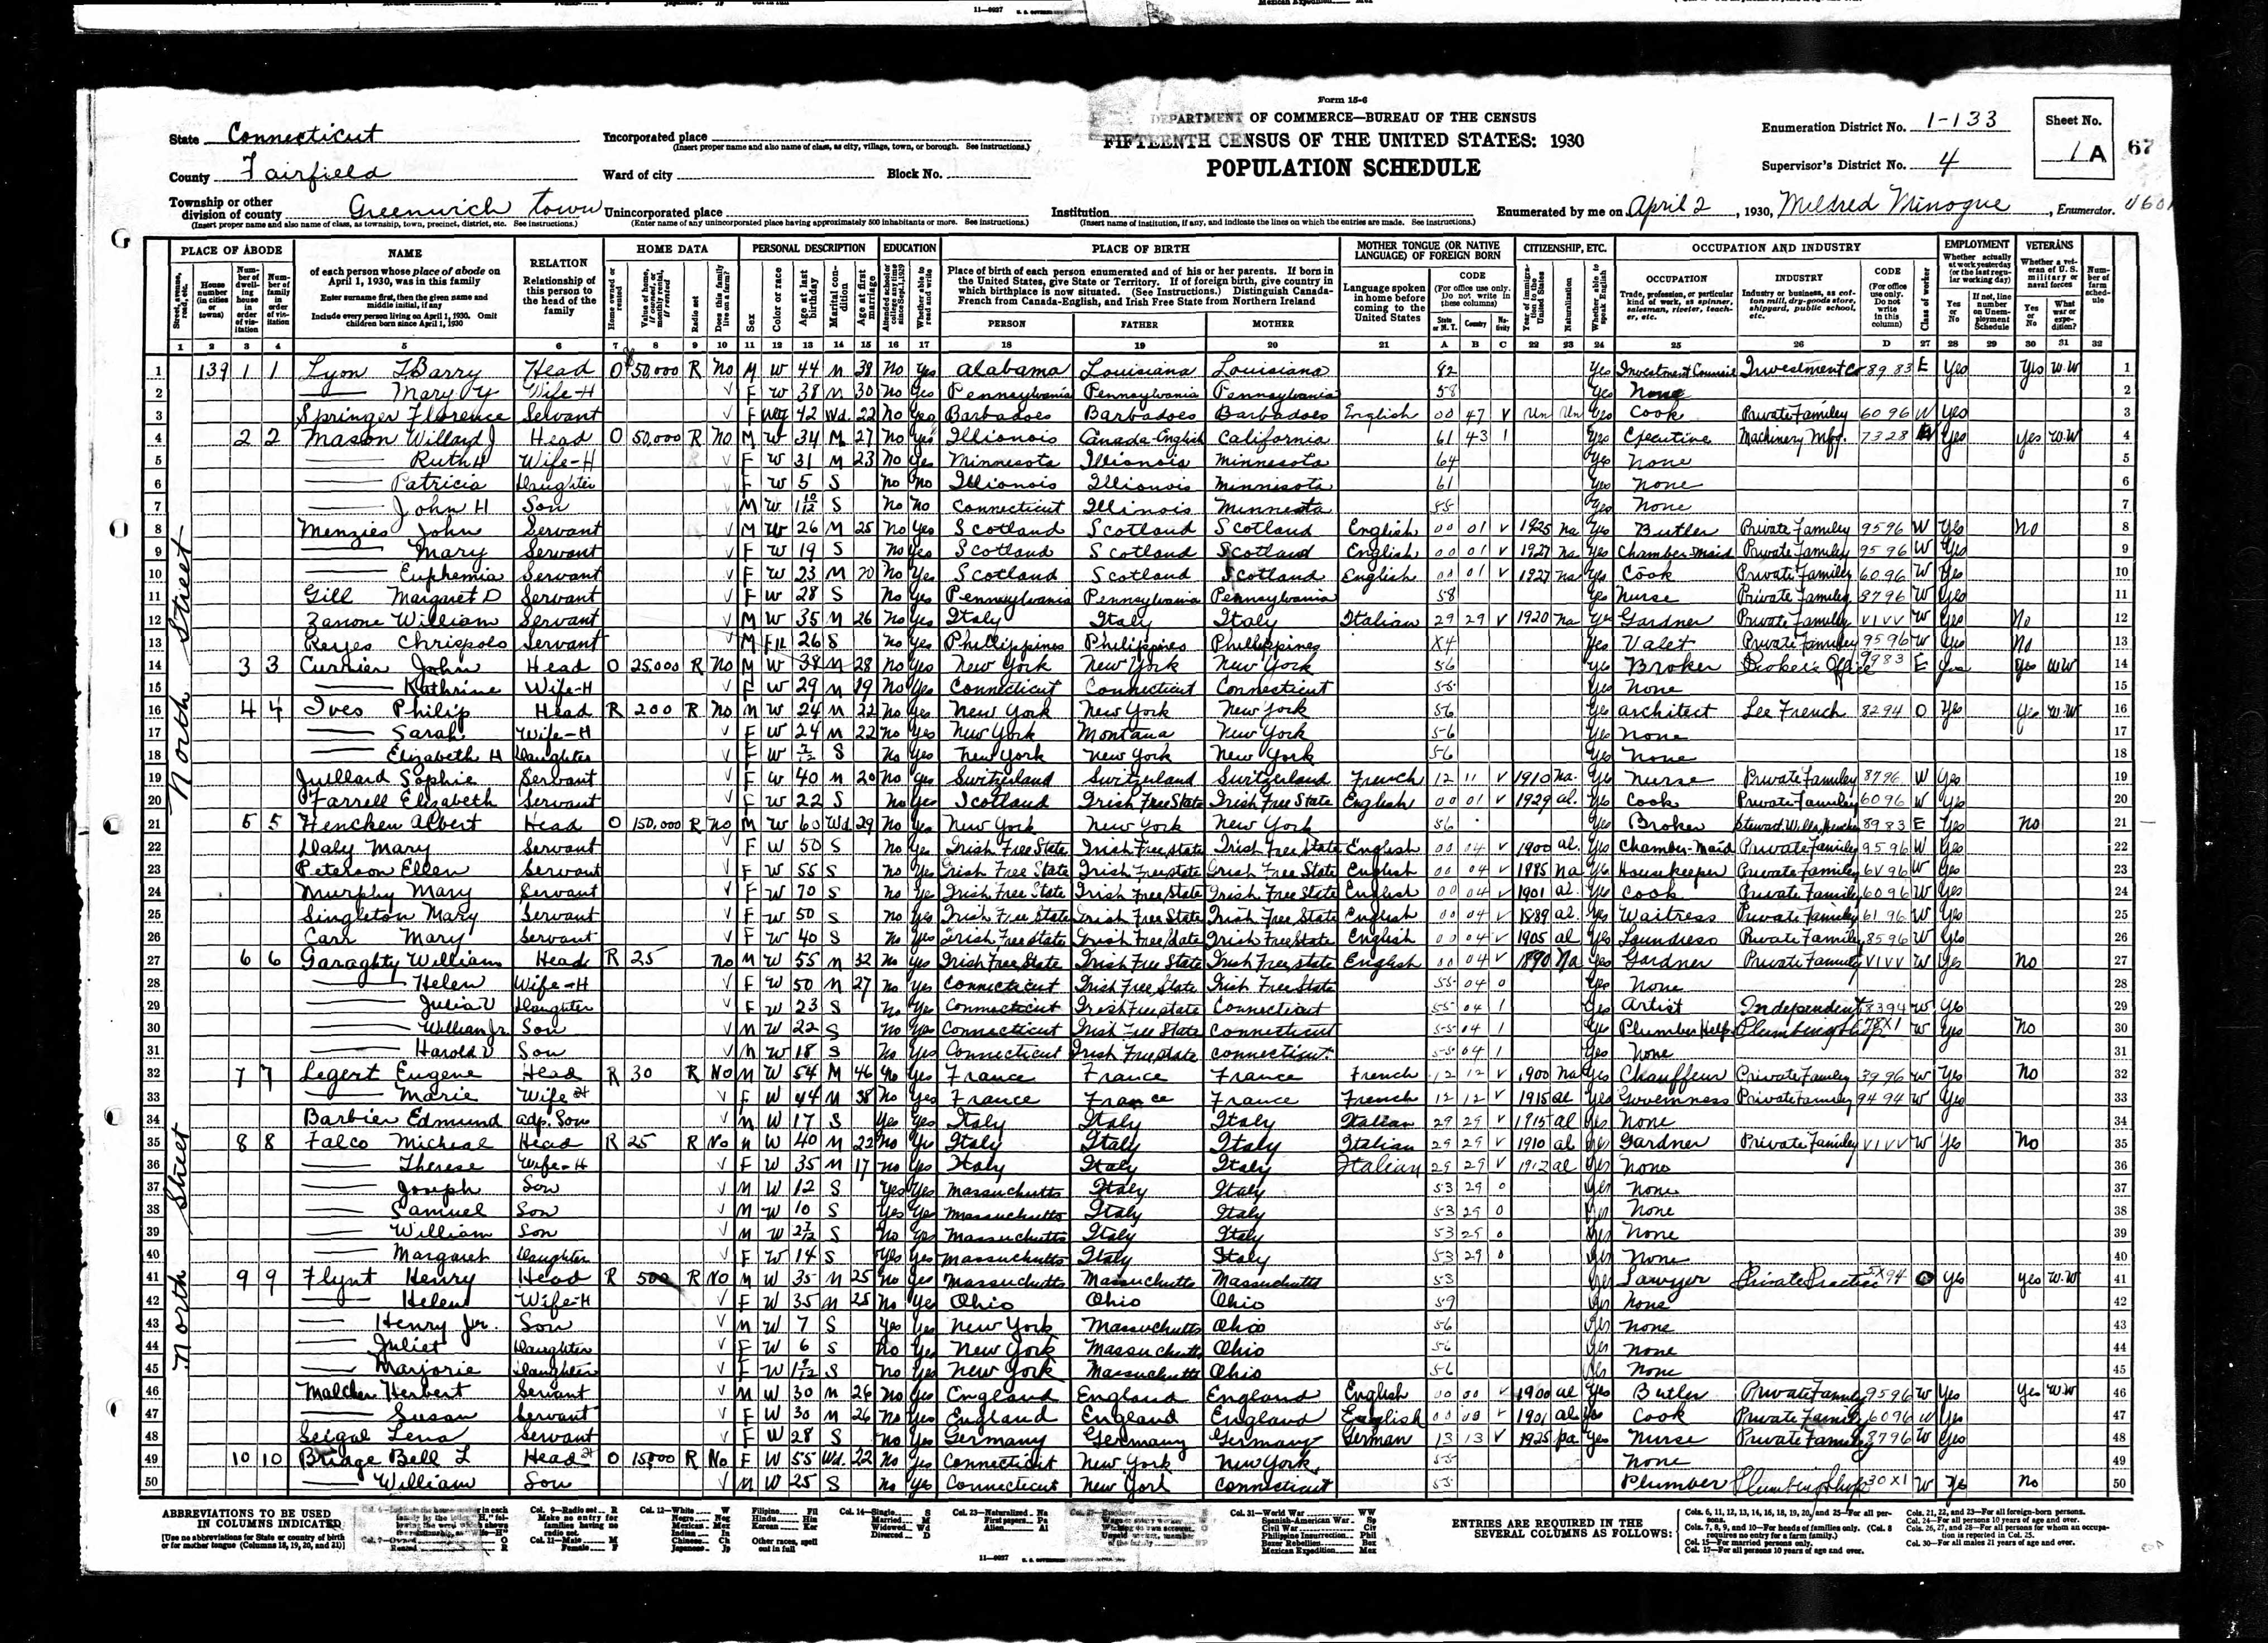 Form 15-6
DEPARTMENT OF COMMERCE—BUREAU OF THE CENSUS
FIFTEENTH CENSUS OF THE UNITED STATES: 1930
POPULATION SCHEDULE
State Connecticut
County Fairfield
Township or other division of county Greenwich town
(Insert proper name and also name of class, as township, town, precinct, district, etc. See instructions.)
Incorporated place
(Insert proper name and also name of class, as city, village, town, or borough. See instructions.)
Ward of city Block No.
Unincorporated place
(Enter name of any unincorporated place having approximately 500 inhabitants or more. See instructions.)
Institution
(Insert name of institution, if any, and indicate the lines on which the entries are made. See instructions.)
Enumeration District No. 1-133
Supervisor's District No. 4
Sheet No. 1 A
67
Enumerated by me on April 2, 1930, Mildred Minogue, Enumerator.
PLACE OF ABODE NAME RELATION HOME DATA PERSONAL DESCRIPTION EDUCATION PLACE OF BIRTH MOTHER TONGUE (OR NATIVE LANGUAGE) OF FOREIGN BORN CITIZENSHIP, ETC. OCCUPATION AND INDUSTRY EMPLOYMENT VETERANS
North Street
1 139 1 1 Lyon Barry Head O 50,000 R No M W 44 M 38 No Yes Alabama Louisiana Louisiana 82 Yes Investment Council Investment Co 8983 E Yes Yes WW
2 Mary Y Wife-H F W 38 M 30 No Yes Pennsylvania Pennsylvania Pennsylvania 58 Yes None
3 Springer Florence Servant F Neg 42 Wd 22 No Yes Barbadoes Barbadoes Barbadoes English 00 47 V Un Un Yes Cook Private Familey 6096 W Yes
4 2 2 Mason Willard J Head O 50,000 R No M W 34 M 27 No Yes Illionois Canada-English California 61 43 1 Yes Executive Machinery Mfg. 7328 Yes Yes W.W
5 Ruth H Wife-H F W 31 M 23 No Yes Minnesota Illionois Minnesota 64 Yes None
6 Patricia Daughter F W 5 S No No Illionois Illionois Minnisota 61 Yes None
7 John H Son M W 1 10/12 S No No Connecticut Illinois Minnesota 55 Yes None
8 Menzies John Servant M W 26 M 25 No Yes Scotland Scotland Scotland English 00 01 V 1925 na Yes Butler Private Familey 9596 W Yes No
9 Mary Servant F W 19 S No Yes Scotland Scotland Scotland English 00 01 V 1927 na Yes Chamber-maid Private Familey 9596 W Yes
10 Euphemia Servant F W 23 M 20 No Yes Scotland Scotland Scotland English 00 01 V 1927 na Yes Cook Private Familey 6096 W Yes
11 Gill Margaret D Servant F W 28 S No Yes Pennsylvania Pennsylvania Pennsylvania 58 Yes Nurse Private Familey 8796 W Yes
12 Zanone William Servant M W 35 M 26 No Yes Italy Italy Italy Italian 29 29 V 1920 na Yes Gardner Private Familey V1VV W Yes No
13 Reyes Chrispolo Servant M Fil 26 S No Yes Phillippines Philippines Phillippines X4 Yes Valet Private Familey 9596 W Yes No
14 3 3 Currier John Head O 25,000 R No M W 38 M 28 No Yes New York New York New York 56 Yes Broker Broker's Office 8983 E Yes Yes WW
15 Kathrine Wife-H F W 29 M 19 No Yes Connecticut Connecticut Connecticut 55 Yes None
16 4 4 Ives Philip Head R 200 R No M W 24 M 22 No Yes New York New York New York 56 Yes architect Lee French 8294 O Yes Yes W.W
17 Sarah Wife-H F W 24 M 22 No Yes New York Montana New York 56 Yes None
18 Elizabeth H Daughter F W S No Yes New York New York New York 56 Yes None
19 Juillard Sophie Servant F W 40 M 20 No Yes Switzerland Switzerland Switzerland French 12 11 V 1910 Na. Yes Nurse Private Familey 8796 W Yes
20 Farrell Elizabeth Servant F W 22 S No Yes Scotland Irish Free State Irish Free State English 00 01 V 1929 al. Yes Cook Private Familey 6096 W Yes
21 5 5 Hencken Albert Head O 150,000 R No M W 60 Wd 29 No Yes New York New York New York 56 Yes Broker 8983 E Yes No
22 Daly Mary Servant F W 50 S No Yes Irish Free State Irish Free State Irish Free State English 00 04 V 1900 al. Yes Chamber-Maid Private Familey 9596 W Yes
23 Peterson Ellen Servant F W 55 S No Yes Irish Free State Irish Free State Irish Free State English 00 04 V 1885 na Yes Housekeeper Private Familey 6V96 W Yes
24 Murphy Mary Servant F W 70 S No Yes Irish Free State Irish Free State Irish Free State English 00 04 V 1901 al. Yes Cook Private Familey 6096 W Yes
25 Singleton Mary Servant F W 50 S No Yes Irish Free State Irish Free State Irish Free State English 00 04 V 1889 al. Yes Waitress Private Familey 6196 W Yes
26 Carr Mary Servant F W 40 S No Yes Irish Free State Irish Free State Irish Free State English 00 04 V 1905 al Yes Laundress Private Familey 8596 W Yes
27 6 6 Garaghty William Head R 25 No M W 55 M 32 No Yes Irish Free State Irish Free State Irish Free State English 00 04 V 1890 Na Yes Gardner Private Familey V1VV W Yes No
28 Helen Wife-H F W 50 M 27 No Yes Connecticut Irish Free State Irish Free State 55 04 0 Yes None
29 Julia V Daughter F W 23 S No Yes Connecticut Irish Free State Connecticut 55 04 1 Yes Artist Independent 8394 W Yes
30 William Jr. Son M W 22 S No Yes Connecticut Irish Free State Connecticut 55 04 1 Yes Plumber Help Plumbing Shop 78X1 W Yes No
31 Harold V Son M W 18 S No Yes Connecticut Irish Free State Connecticut 55 04 1 Yes None
32 7 7 Legert Eugene Head R 30 R No M W 54 M 46 No Yes France France France French 12 12 V 1900 Na Yes Chauffeur Private Familey 3996 W Yes No
33 Marie Wife H F W 44 M 38 No Yes France France France French 12 12 V 1915 al Yes Governness Private Familey 9494 W Yes
34 Barbier Edmund adp. Son M W 17 S Yes Yes Italy Italy Italy Italian 29 29 V 1915 al Yes None
35 8 8 Falco Micheal Head R 25 R No M W 40 M 22 No Yes Italy Italy Italy Italian 29 29 V 1910 al Yes Gardner Private Familey V1VV W Yes No
36 Therese Wife-H F W 35 M 17 No Yes Italy Italy Italy Italian 29 29 V 1912 al Yes None
37 Joseph Son M W 12 S Yes Yes Massachutts Italy Italy 53 29 0 Yes None
38 Samuel Son M W 10 S Yes Yes Massachutts Italy Italy 53 29 0 Yes None
39 William Son M W 2 7/12 S No Yes Massachutts Italy Italy 53 29 0 Yes None
40 Margaret Daughter F W 14 S Yes Yes Massachutts Italy Italy 53 29 0 Yes None
41 9 9 Flynt Henry Head R 500 R No M W 35 M 25 No Yes Massachutts Massachutts Massachutts 53 Yes Lawyer Private Practice 5X94 O Yes Yes W.W
42 Helen Wife-H F W 35 M 25 No Yes Ohio Ohio Ohio 59 Yes None
43 Henry Jr. Son M W 7 S Yes Yes New York Massachutts Ohio 56 Yes None
44 Juliet Daughter F W 6 S No Yes New York Massachutts Ohio 56 Yes None
45 Marjorie Daughter F W S No Yes New York Massachutts Ohio 56 Yes None
46 Malcher Herbert Servant M W 30 M 26 No Yes England England England English 00 00 V 1900 al Yes Butler Private Family 9596 W Yes Yes W.W
47 Susan Servant F W 30 M 26 No Yes England England England English 00 00 V 1901 al Yes Cook Private Family 6096 W Yes
48 Seigal Lena Servant F W 28 S No Yes Germany Germany Germany German 13 13 V 1925 pa Yes Nurse Private Family 8796 W Yes
49 10 10 Bridge Bell L Head H O 15,000 R No F W 55 Wd. 22 No Yes Connecticut New York New York 55 None
50 William Son M W 25 S No Yes Connecticut New York Connecticut 55 Plumber Plumbing Shop 30X1 W Yes No
ABBREVIATIONS TO BE USED IN COLUMNS INDICATED
ENTRIES ARE REQUIRED IN THE SEVERAL COLUMNS AS FOLLOWS:
11—9027